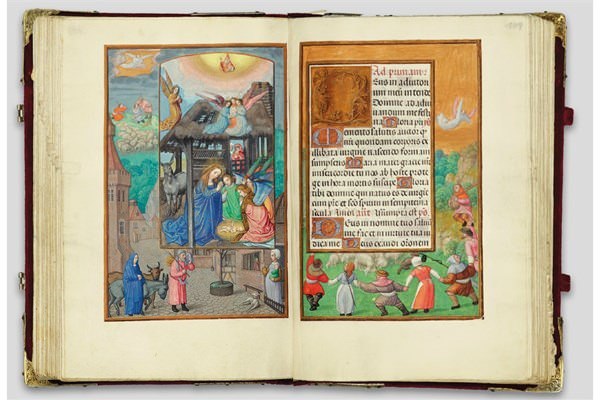 Ad primam:
Eus in adiutori
um meū in tende
Domine ad adiu
uandum me festi
na Gloria pr̄i
Memento salutis auctor q̄
nr̄i quondam corporis ex
illibata virgine nascendo formam
sumpseris Maria mater gracie m̄r
misericordie tu nos ab hoste prote
ge in hora mortis suscipe Gloria
tibi domine qui natus es de virgine
cum pr̄e et sc̄o spiritu in sempiterna
secula Amen añ Assumpta est ps̄
Deus in nomine tuo saluū
me fac et in virtute tua iu
dica me Deus exaudi orationem